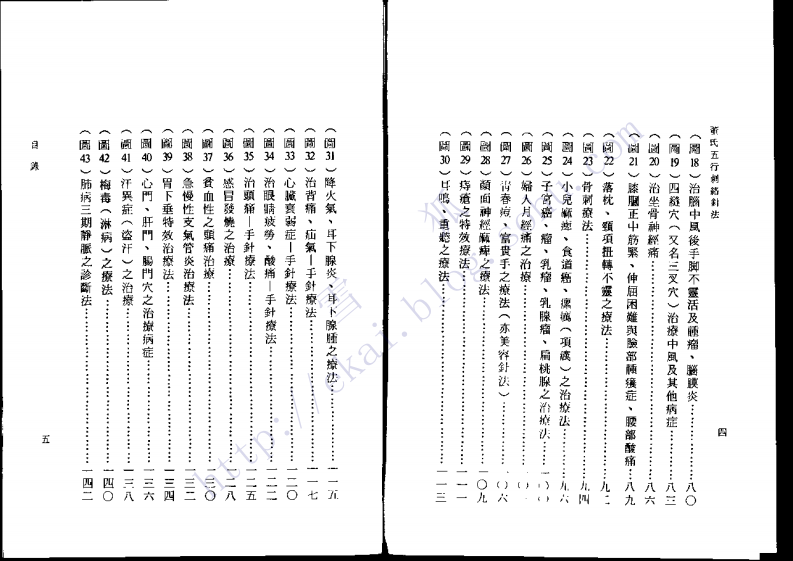 董氏五行針絡針法
(圖18)治腦中風後手脚不靈活及腫瘤、腦膜炎…………八〇
(圖19)四縫穴(又名三叉穴)治療中風及其他病症…………八三
(圖20)治坐骨神經痛…………八六
(圖21)膝膕正中筋緊、伸屈困難與臉部腫癀症、腰部酸痛……八九
(圖22)落枕、頸項扭轉不靈之療法…………九二
(圖23)骨刺療法…………九四
(圖24)小兒麻痺、食道癌、瘰癧(項癧)之治療法…………九六
(圖25)子宮癌、瘤、乳瘤、乳腺瘤、扁桃腺之治療法…………一〇〇
(圖26)婦人月經痛之治療…………
(圖27)青春痘、富貴手之療法(亦美容針法)…………一〇六
(圖28)顏面神經麻痺之療法…………一〇九
(圖29)痔瘡之特效療法…………一一一
(圖30)耳鳴、重聽之療法…………一一三
四
(圖31)降火氣、耳下腺炎、耳下腺腫之療法…………一一五
(圖32)治背痛、疝氣—手針療法…………一一七
(圖33)心臟衰弱症—手針療法…………一二〇
(圖34)治眼睛疲勞、酸痛—手針療法…………一二二
(圖35)治頭痛—手針療法…………一二五
(圖36)感冒發燒之治療…………一二八
(圖37)貧血性之頭痛治療…………一三〇
(圖38)急慢性支氣管炎治療法…………一三二
(圖39)胃下垂特效治療法…………一三四
(圖40)心門、肝門、腸門穴之治療病症…………一三六
(圖41)汗異症(盜汗)之治療…………一三八
(圖42)梅毒(淋病)之療法…………一四〇
(圖43)肺病三期靜脈之診斷法…………一四二
目錄
五